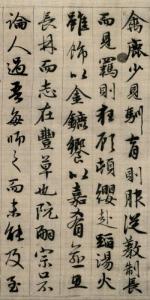 禽鹿少見馴育則服從教制長
而見羈則狂顧頓纓赴蹈湯火
雖飾以金鑣饗以嘉肴思
長林而志在豐草也阮嗣宗口不
論人過吾每師之而未能及至